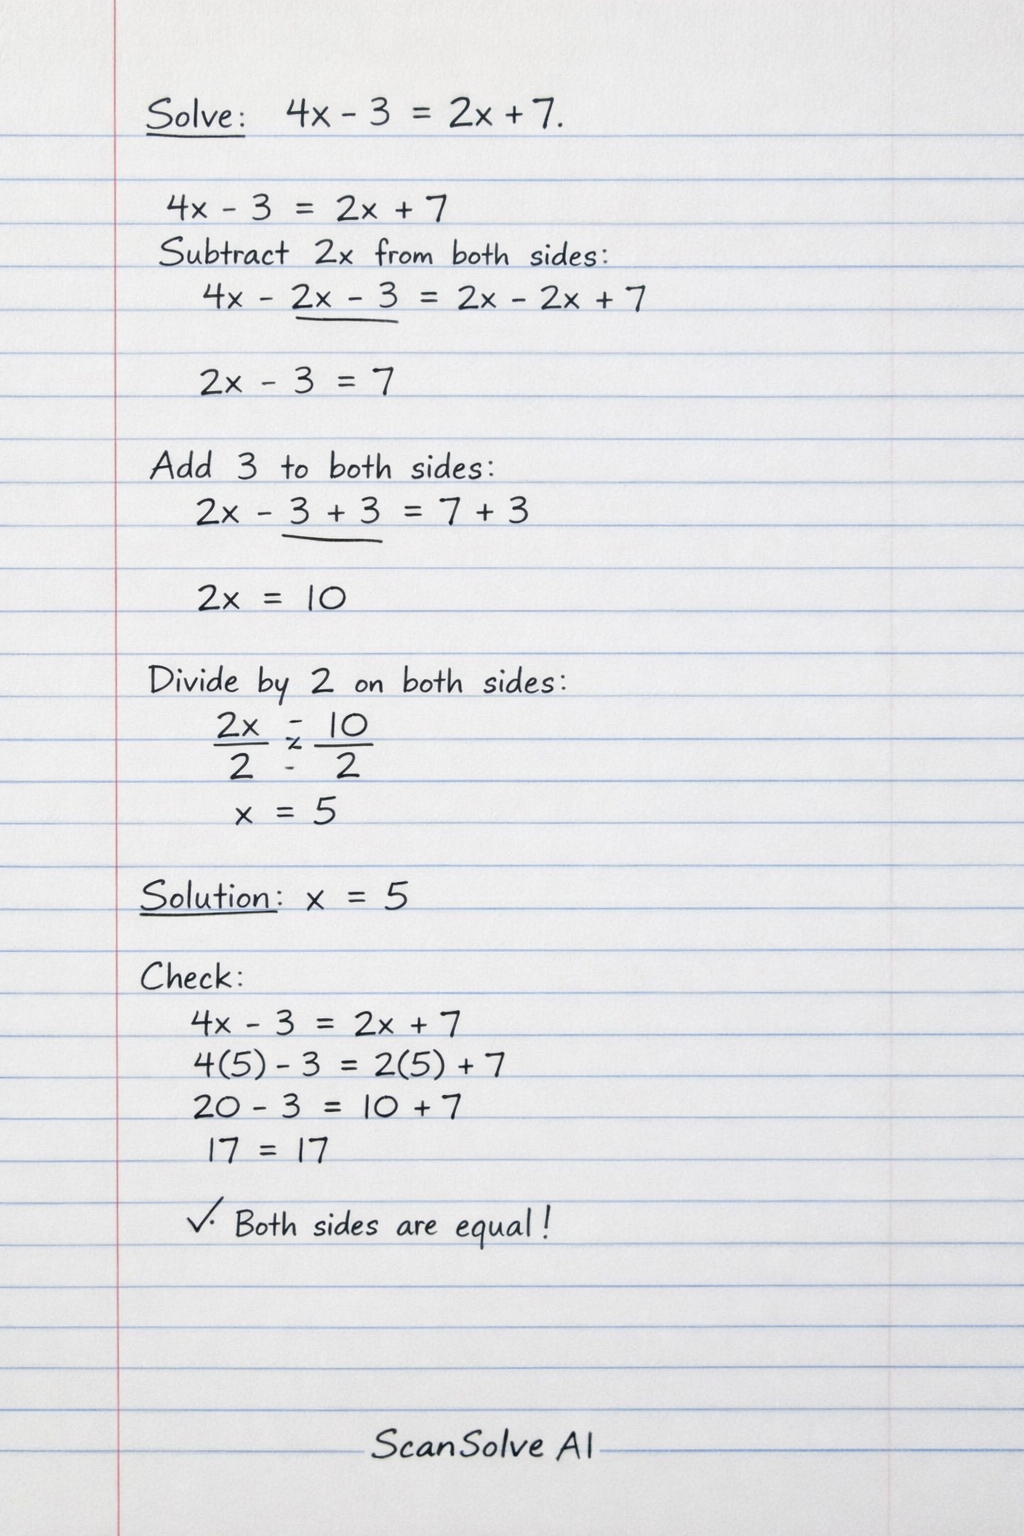 Solve: 4x - 3 = 2x + 7.
4x - 3 = 2x + 7
Subtract 2x from both sides:
4x - 2x - 3 = 2x - 2x + 7
2x - 3 = 7
Add 3 to both sides:
2x - 3 + 3 = 7 + 3
2x = 10
Divide by 2 on both sides:
2x/2 = 10/2
x = 5
Solution: x = 5
Check:
4x - 3 = 2x + 7
4(5) - 3 = 2(5) + 7
20 - 3 = 10 + 7
17 = 17
✓ Both sides are equal!
ScanSolve AI